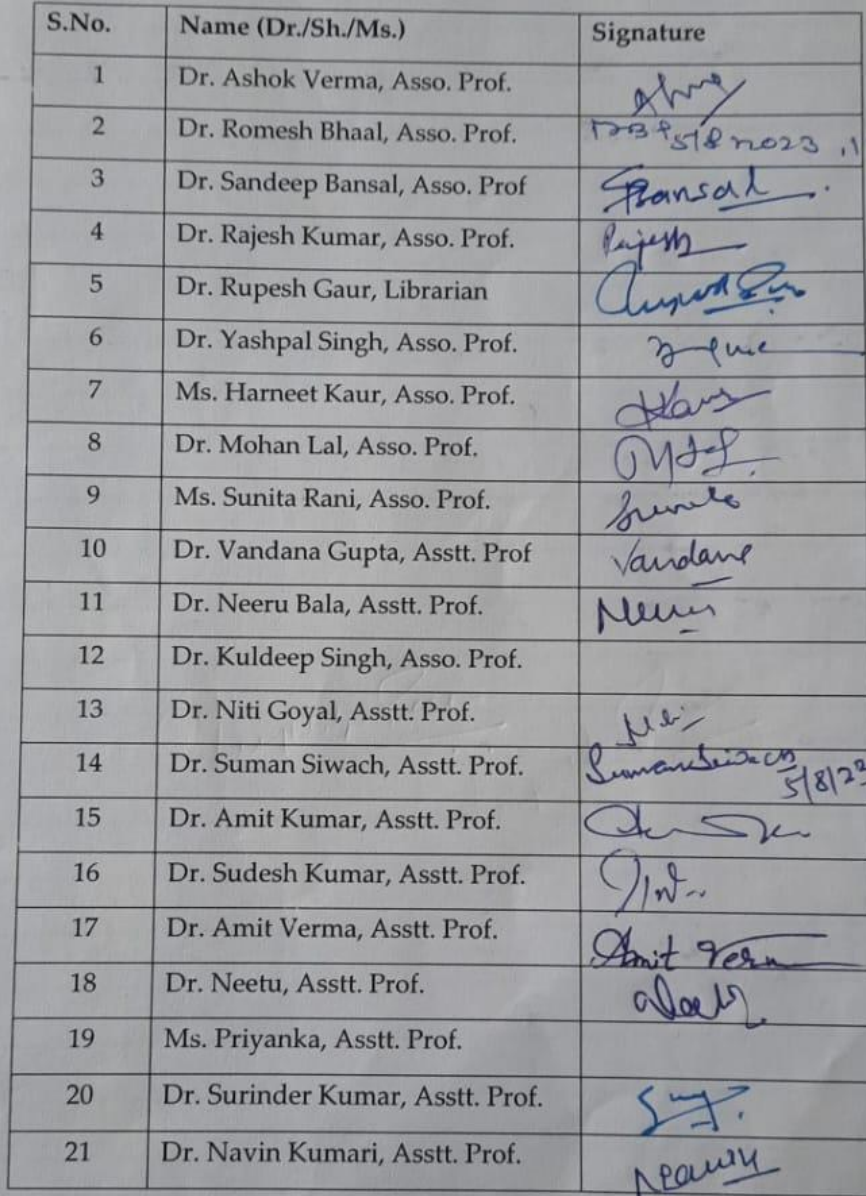 S.No. Name (Dr./Sh./Ms.) Signature
1 Dr. Ashok Verma, Asso. Prof.
2 Dr. Romesh Bhaal, Asso. Prof. 5/8/2023
3 Dr. Sandeep Bansal, Asso. Prof SBansal
4 Dr. Rajesh Kumar, Asso. Prof. Rajesh
5 Dr. Rupesh Gaur, Librarian
6 Dr. Yashpal Singh, Asso. Prof.
7 Ms. Harneet Kaur, Asso. Prof. HKaur
8 Dr. Mohan Lal, Asso. Prof.
9 Ms. Sunita Rani, Asso. Prof. Sunita
10 Dr. Vandana Gupta, Asstt. Prof Vandana
11 Dr. Neeru Bala, Asstt. Prof. Neeru
12 Dr. Kuldeep Singh, Asso. Prof.
13 Dr. Niti Goyal, Asstt. Prof.
14 Dr. Suman Siwach, Asstt. Prof. Suman Siwach 5/8/23
15 Dr. Amit Kumar, Asstt. Prof.
16 Dr. Sudesh Kumar, Asstt. Prof.
17 Dr. Amit Verma, Asstt. Prof. Amit Verma
18 Dr. Neetu, Asstt. Prof.
19 Ms. Priyanka, Asstt. Prof.
20 Dr. Surinder Kumar, Asstt. Prof.
21 Dr. Navin Kumari, Asstt. Prof.